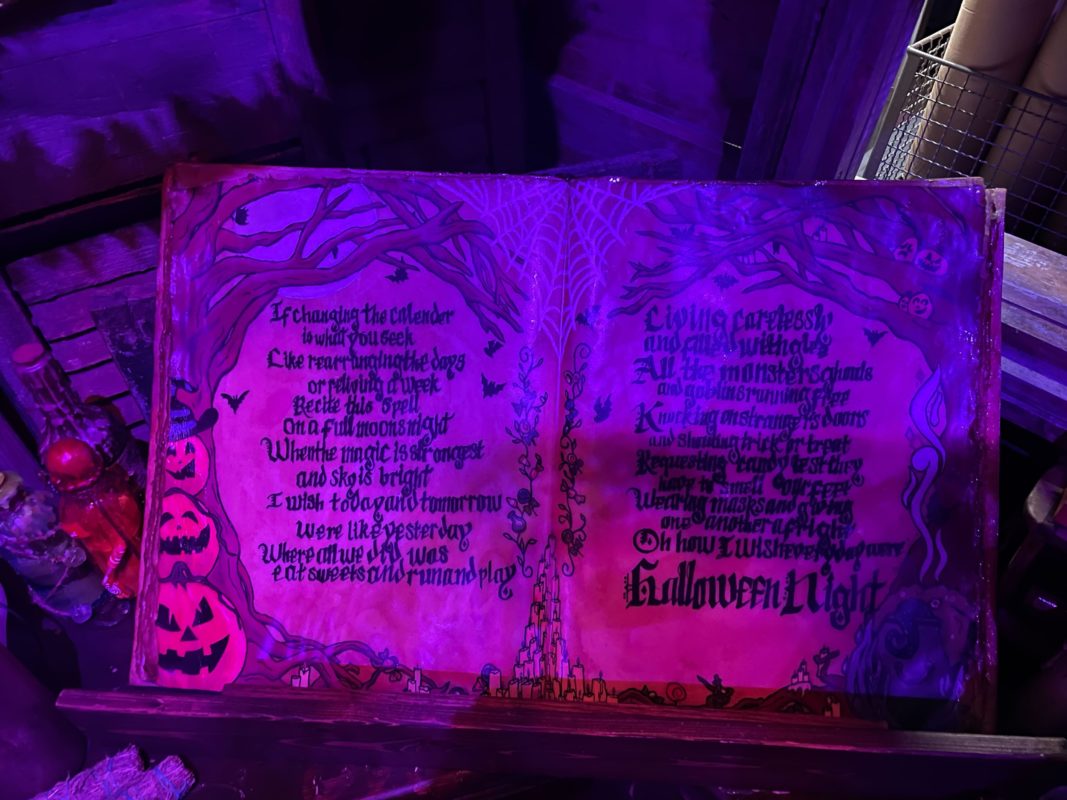 If changing the calender
is what you seek
Like rearranging the days
or reliving a week
Recite this spell
On a full moons night
When the magic is strongest
and sky is bright
I wish today and tomorrow
were like yesterday
Where all we did was
eat sweets and run and play
Living carelessly
and filled with glee
All the monsters ghouls
and goblins running free
Knocking on stranger's doors
and shouting trick or treat
Requesting candy lest they
have to smell our feet
Wearing masks and giving
one another a fright
Oh how I wish every day were
Halloween Night